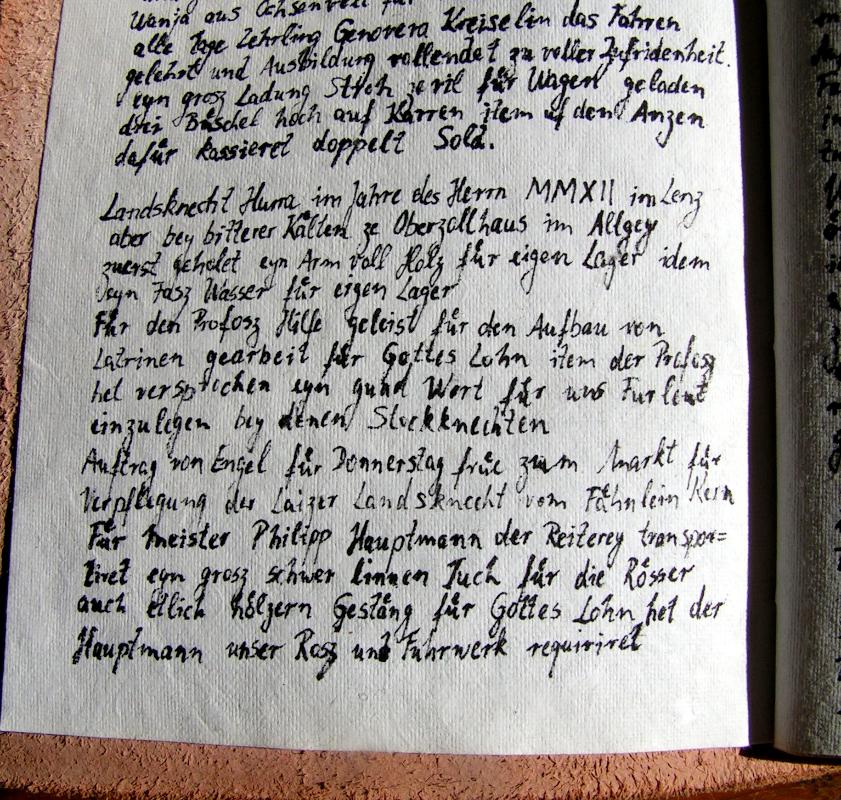 Wanja aus Ochsenbett für
alle Tage Lehrling Genovera Kreiselin das Fahren
gelehrt und Ausbildung vollendet zu voller Zufridenheit.
eyn grosz Ladung Stroh ze vil für Wagen geladen
drei Büschel hoch auf Karren item uf den Anzen
dafür kassieret doppelt Sold.
Landsknecht Hurra im Jahre des Herrn MMXII im Lenz
aber bey bitterer Kälten ze Oberzollhaus im Allgey
zuerst geholet eyn Arm voll Holz für eigen Lager idem
eyn Fasz Wasser für eigen Lager
Für den Profosz Hilfe geleist für den Aufbau von
Latrinen gearbeit für Gottes Lohn item der Profosz
het versprochen eyn gund Wort für uns Furleut
einzulegen bey denen Stockknechten
Auftrag von Engel für Donnerstag frue zum Markt für
Verpflegung der Laizer Landsknecht vom Fähnlein Kern
Für Meister Philipp Hauptmann der Reiterey transpor=
tiret eyn grosz schwer linnen Tuch für die Rösser
auch etlich hölzern Gestäng für Gottes Lohn het der
Hauptmann unser Rosz und Fuhrwerk requiriret